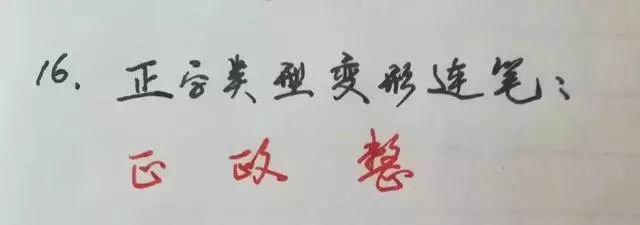 16. 正字类型变形连笔：
正 政 整